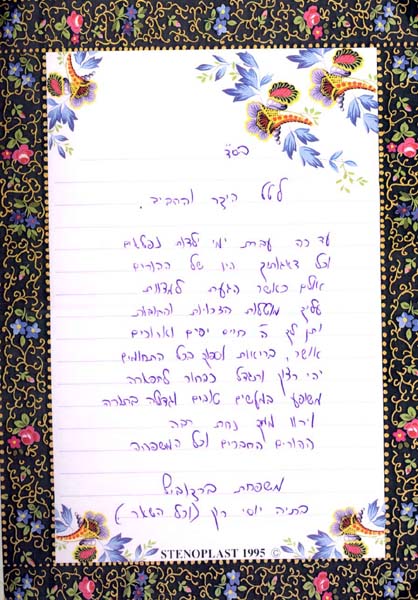 בס"ד
לטל היקר והחביב.
עד כה עברת ימי ילדות נפלאים
וכל דאגותיך היו של ההורים
אולם כאשר הגעת למצוות
עליך מוטלות הזכויות והחובות
ויתן לך ה' חיים יפים וארוכים
אושר, בריאות וסיפוק בכל התחומים
יהי רצון ותגדל כבחור לתפארה
משופע במעשים טובים וגדלה בתורה
וירוו ממך נחת רבה
ההורים החברים וכל המשפחה
משפחת
בתיה יוסי רן (וכל השאר..)
STENOPLAST 1995 ©